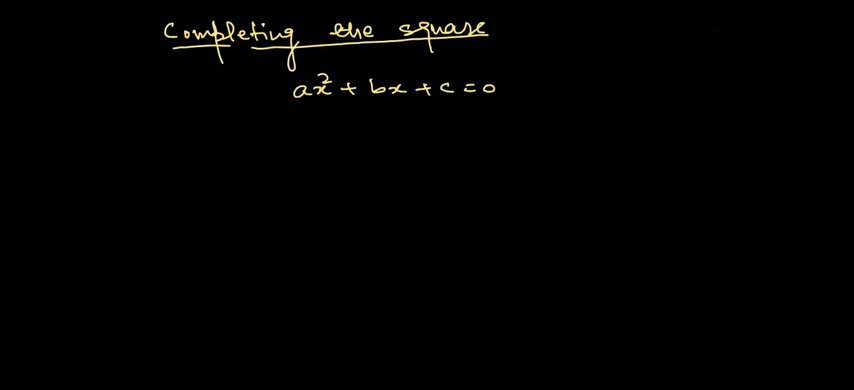 Completing the square
ax² + bx + c = 0